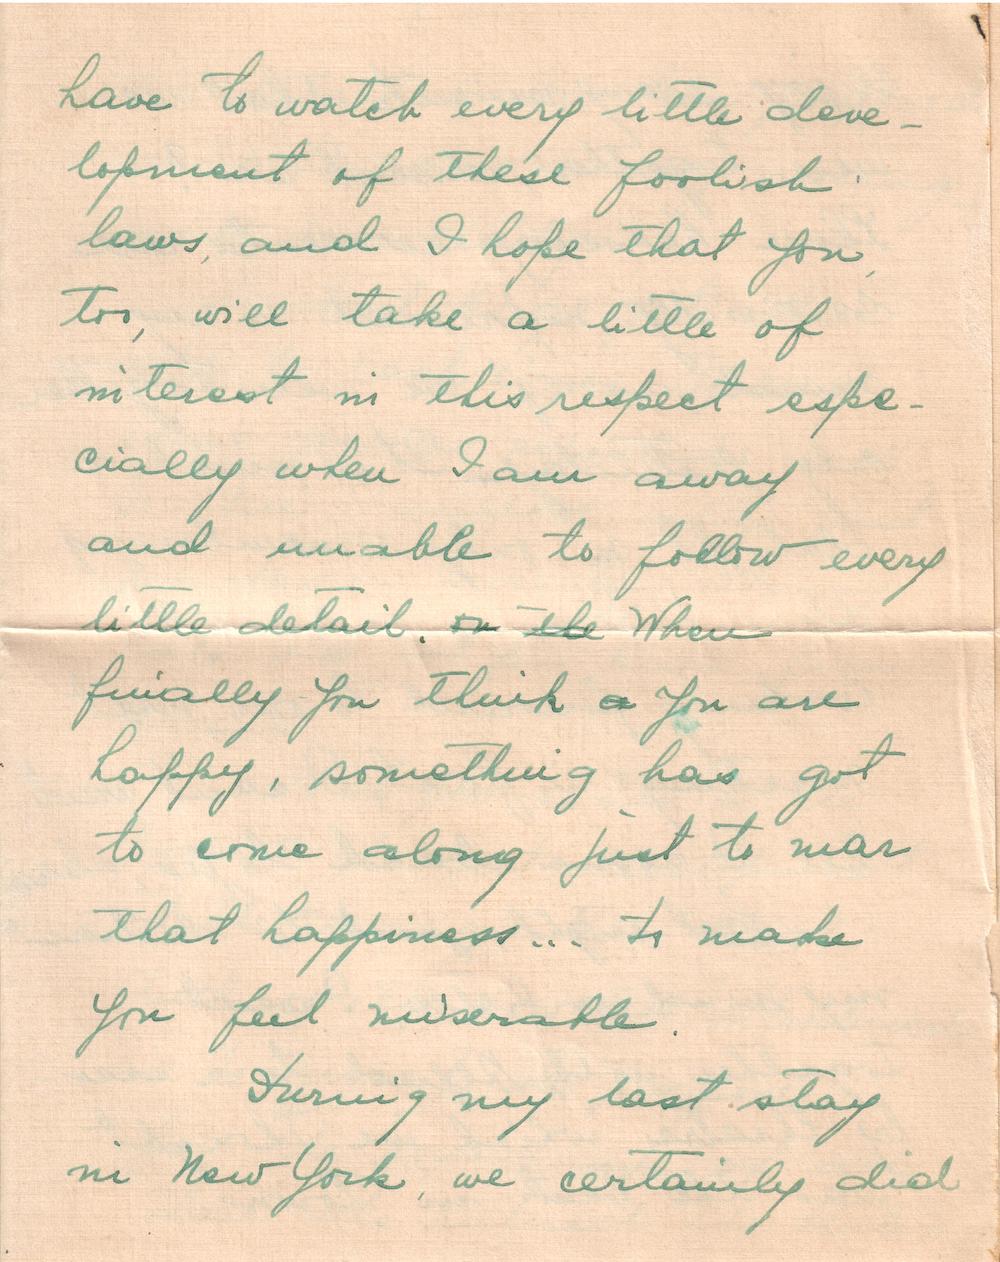 have to watch every little deve-
lopment of these foolish
laws, and I hope that you,
too, will take a little of
interest in this respect espe-
cially when I am away
and unable to follow every
little detail. on the When
finally you think a you are
happy, something has got
to come along just to mar
that happiness... to make
you feel miserable.
During my last stay
in New York, we certainly did